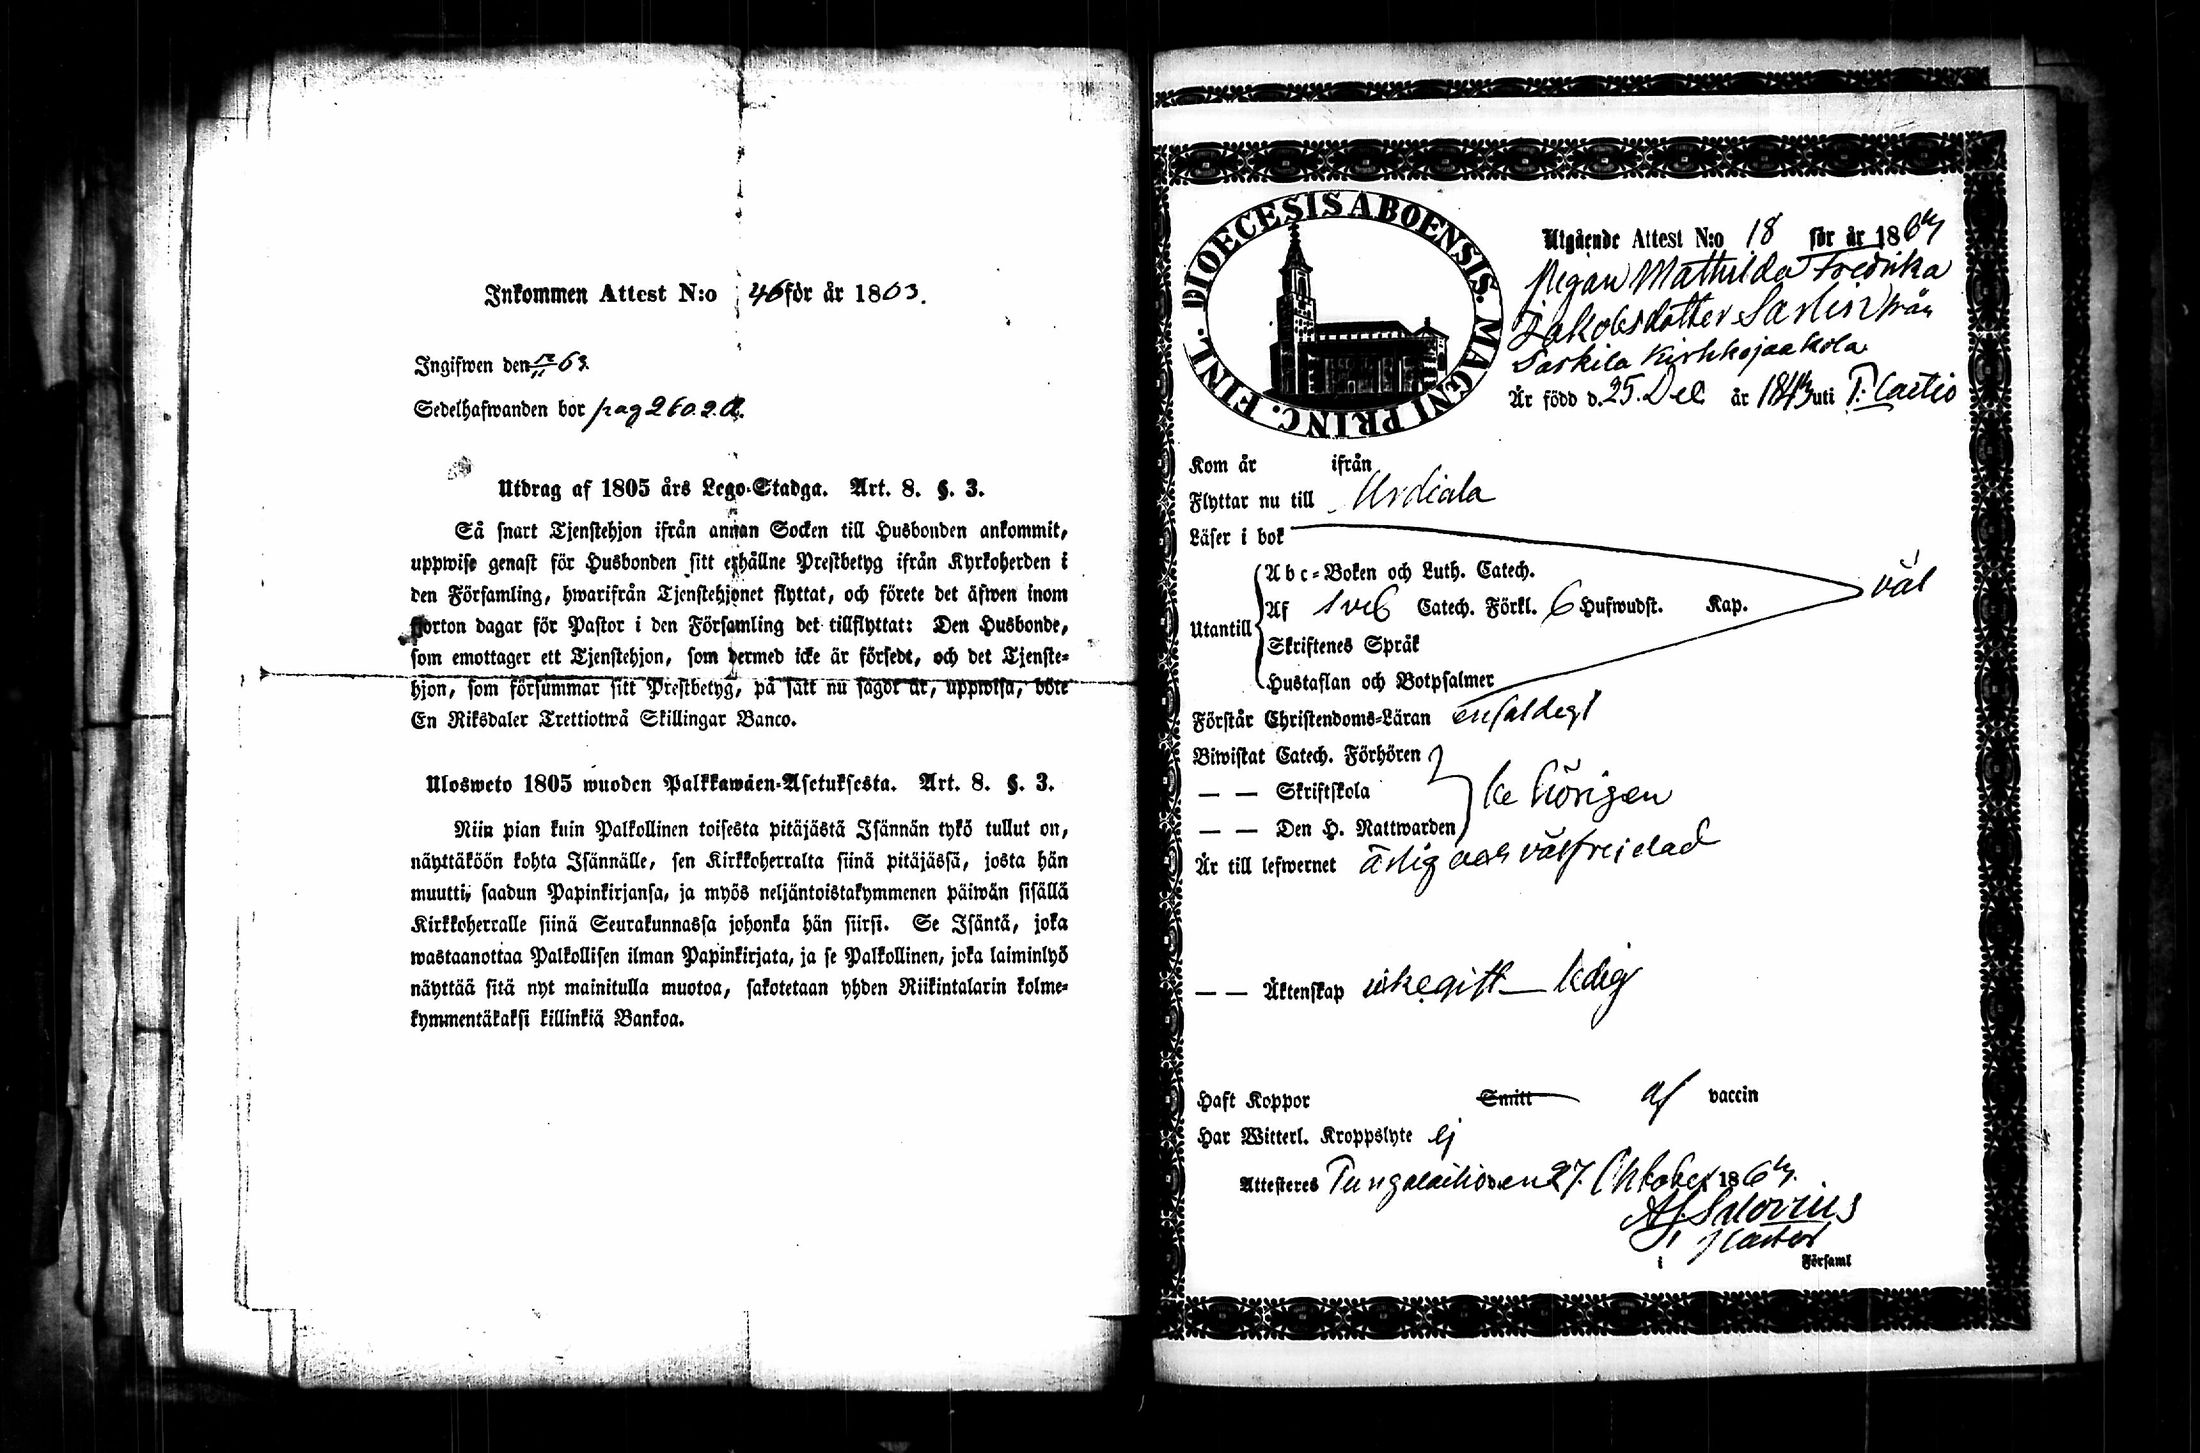 Inkommen Attest N:o 46 för år 1863.
Ingifwen den 63.
Sedelhafwanden bor pag 260.2.d.
Utdrag af 1805 års Lego-Stadga. Art. 8. §. 3.
Så snart Tjenstehjon ifrån annan Socken till Husbonden ankommit,
uppwise genast för Husbonden sitt erhållne Prestbetyg ifrån Kyrkoherden i
den Församling, hwarifrån Tjenstehjonet flyttat, och förete det äfwen inom
fjorton dagar för Pastor i den Församling det tillflyttat: Den Husbonde,
som emottager ett Tjenstehjon, som dermed icke är försedt, och det Tjenste=
hjon, som försummar sitt Prestbetyg, på sätt nu sagdt är, uppwisa, böte
En Riksdaler Trettiotwå Skillingar Banco.
Ulosweto 1805 wuoden Palkkawäen-Asetuksesta. Art. 8. §. 3.
Niin pian kuin Palkollinen toisesta pitäjästä Isännän tykö tullut on,
näyttäköön kohta Isännälle, sen Kirkkoherralta siinä pitäjässä, josta hän
muutti, saadun Papinkirjansa, ja myös neljäntoistakymmenen päiwän sisällä
Kirkkoherralle siinä Seurakunnassa johonka hän siirsi. Se Isäntä, joka
wastaanottaa Palkollisen ilman Papinkirjata, ja se Palkollinen, joka laiminlyö
näyttää sitä nyt mainitulla muotoa, sakotetaan yhden Riikintalarin kolme=
kymmentäkaksi killinkiä Bankoa.
DIOECESIS ABOENSIS. MAGNI PRINC. FINL.
Utgående Attest N:o 18 för år 1863
Pigan Mathilda Fredrika
Jakobsdotter Sarlin från
Sarkila Kirkkojaakola
Är född d. 25. Dec år 1843 uti P: Laitio
Kom år ifrån
Flyttar nu till Urdiala
Läser i bok
väl
Utantill
Abc=Boken och Luth. Catech.
Af Sveb Catech. Förkl. 6 Hufwudst. Kap.
Skriftenes Språk
Hustaflan och Botpsalmer
Förstår Christendoms=Läran enfaldigt
Biwistat Catech. Förhören
— — Skriftskola behörigen
— — Den H. Nattwarden
Är till lefwernet ärlig och välfrejdad
— — Äktenskap icke gift — ledig
Haft Koppor Smitt af vaccin
Har Witterl. Kroppslyte ej
Attesteres Pungalaitio den 27. Oktober 1863.
Salovius
Pastor
i Församl